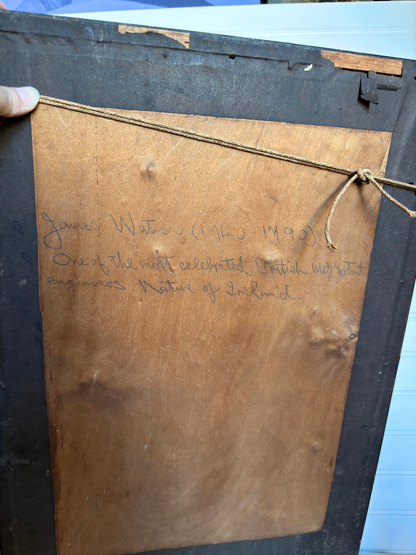 James Watson (1740-1790).
One of the most celebrated British mezzotint
engravers. Native of Ireland.